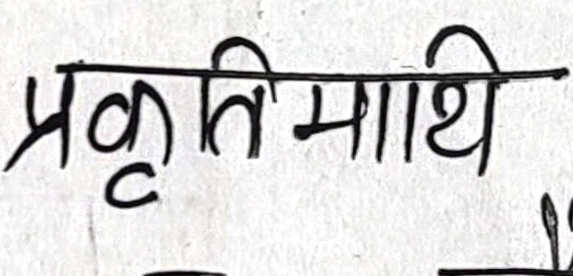 प्रकृति माथि